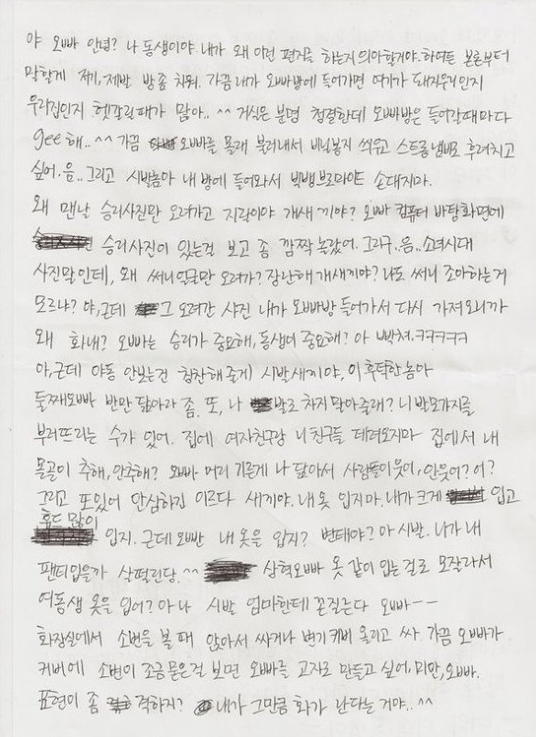 야 오빠 안녕? 나 동생이야. 내가 왜 이런 편지를 하는지 의아할거야. 하여튼 본론부터
말할게 제기, 제발 방 좀 치워. 가끔 내가 오빠방에 들어가면 여기가 돼지우리인지
우리집인지 헷갈릴때가 많아.. ^^ 거실은 분명 청결한데 오빠방은 들어갈때마다
gee해..^^ 가끔 오빠를 몰래 불러내서 비닐봉지 씌우고 스트롱냄비로 후려치고
싶어. 음.. 그리고 시발놈아 내 방에 들어와서 빅뱅브로마이드 손대지마.
왜 맨날 승리사진만 오려가고 지랄이야 개새끼야? 오빠 컴퓨터 바탕화면에
승리사진이 있는걸 보고 좀 깜짝 놀랐어. 그리구..음..소녀시대
사진말인데, 왜 써니얼굴만 오려가? 장난해 개새끼야? 나도 써니 조아하는거
모르냐? 야, 근데 그 오려간 사진 내가 오빠방 들어가서 다시 가져오니까
왜 화내? 오빠는 승리가 중요해, 동생이 중요해? 아 빡쳐.ㅋㅋㅋㅋㅋ
아, 근데 야동 안보는건 칭찬해줄게 시발새끼야, 이 후덕한놈아
둘째오빠 반만 닮아라 좀. 또, 나 발로 차지 말아줄래? 니 발모가지를
부러뜨리는 수가 있어. 집에 여자친구랑 니 친구들 데려오지마 집에서 내
몰골이 추해, 안추해? 오빠 머리 기른게 나 닮아서 사람들이 웃어, 안웃어? 어?
그리고 또있어 안심하긴 이르다 새끼야. 내 옷 입지마. 내가 크게 입고
후드 많이
입지. 근데 오빤 내 옷을 입지? 변태야? 아 시발. 니가 내
팬티입을까 살떨린당.^^ 삼혁오빠 옷 같이 입는 걸로 모잘라서
여동생 옷을 입어? 아 나 시발 엄마한테 꼰질는다 오빠--
화장실에서 소변을 볼 때 앉아서 싸거나 변기커버 올리고 싸. 가끔 오빠가
커버에 소변이 조금묻은걸 보면 오빠를 고자로 만들고 싶어. 미안, 오빠.
표현이 좀 격하지? 내가 그만큼 화가 난다는 거야..^^